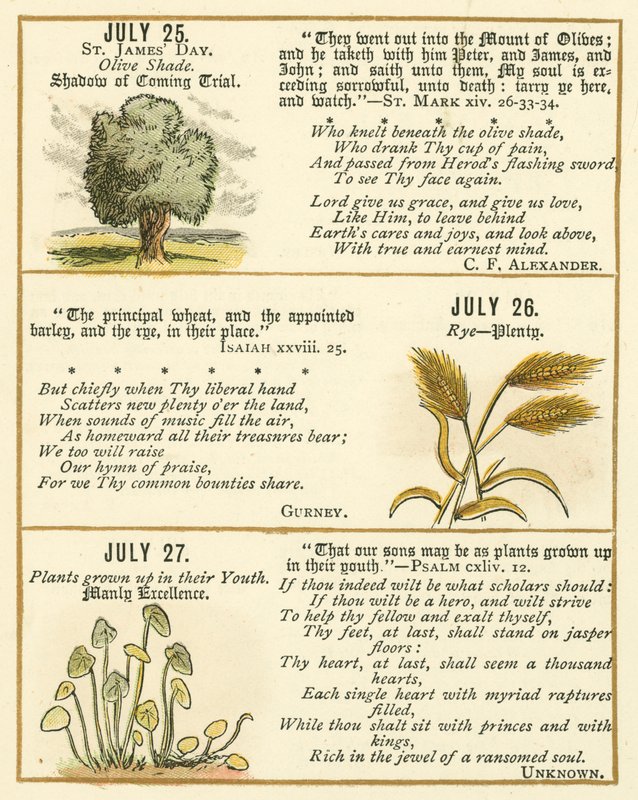 JULY 25.
ST. JAMES' DAY.
Olive Shade.
Shadow of Coming Trial.
"They went out into the Mount of Olives;
and he taketh with him Peter, and James, and
John; and saith unto them, My soul is ex-
ceeding sorrowful, unto death: tarry ye here,
and watch."—ST. MARK xiv. 26-33-34.
* * * * *
Who knelt beneath the olive shade,
Who drank Thy cup of pain,
And passed from Herod's flashing sword,
To see Thy face again.
Lord give us grace, and give us love,
Like Him, to leave behind
Earth's cares and joys, and look above,
With true and earnest mind.
C. F. ALEXANDER.
"The principal wheat, and the appointed
barley, and the rye, in their place."
ISAIAH xxviii. 25.
* * * * * *
But chiefly when Thy liberal hand
Scatters new plenty o'er the land,
When sounds of music fill the air,
As homeward all their treasnres bear;
We too will raise
Our hymn of praise,
For we Thy common bounties share.
GURNEY.
JULY 26.
Rye—Plenty.
JULY 27.
Plants grown up in their Youth.
Manly Excellence.
"That our sons may be as plants grown up
in their youth."—PSALM cxliv. 12.
If thou indeed wilt be what scholars should:
If thou wilt be a hero, and wilt strive
To help thy fellow and exalt thyself,
Thy feet, at last, shall stand on jasper
floors:
Thy heart, at last, shall seem a thousand
hearts,
Each single heart with myriad raptures
filled,
While thou shalt sit with princes and with
kings,
Rich in the jewel of a ransomed soul.
UNKNOWN.